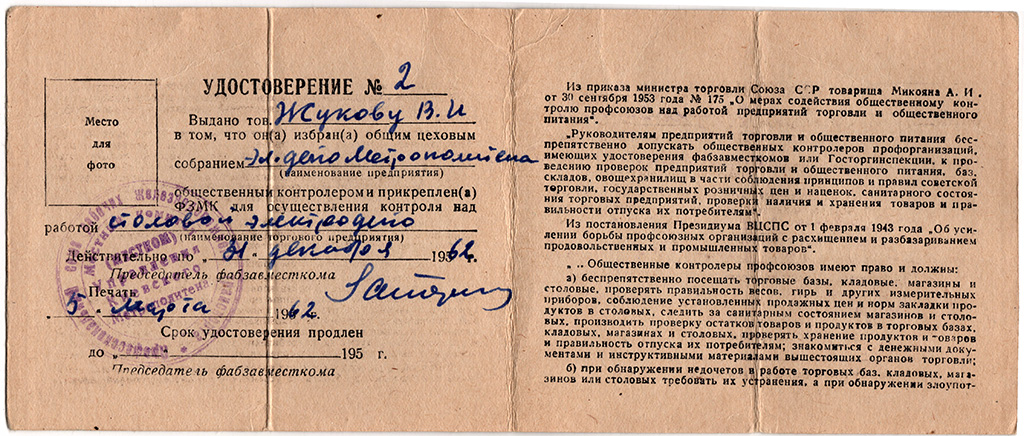 УДОСТОВЕРЕНИЕ № 2
Место
для
фото
Выдано тов. Жукову В. И
в том, что он(а) избран(а) общим цеховым
собранием эл. депо Метрополитена
(наименование предприятия)
общественным контролером и прикреплен(а)
ФЗМК для осуществления контроля над
работой столовой электродепо
(наименование торгового предприятия)
Действительно по „31 " декабря 1962 г.
Председатель фабзавместкома
Печать
5 Марта 1962 г.
Срок удостоверения продлен
до „ 195 г.
Председатель фабзавместкома
Из приказа министра торговли Союза ССР товарища Микояна А. И.
от 30 сентября 1953 года № 175 „О мерах содействия общественному кон-
тролю профсоюзов над работой предприятий торговли и общественного
питания".
„Руководителям предприятий торговли и общественного питания бес-
препятственно допускать общественных контролеров профорганизаций,
имеющих удостоверения фабзавместкомов или Госторгинспекции, к про-
ведению проверок предприятий торговли и общественного питания, баз,
складов, овощехранилищ в части соблюдения принципов и правил советской
торговли, государственных розничных цен и наценок, санитарного состоя-
ния торговых предприятий, проверки наличия и хранения товаров и пра-
вильности отпуска их потребителям".
Из постановления Президиума ВЦСПС от 1 февраля 1943 года „Об уси-
лении борьбы профсоюзных организаций с расхищением и разбазариванием
продовольственных и промышленных товаров".
„ . . Общественные контролеры профсоюзов имеют право и должны:
а) беспрепятственно посещать торговые базы, кладовые, магазины и
столовые, проверять правильность весов, гирь и других измерительных
приборов, соблюдение установленных продажных цен и норм закладки про-
дуктов в столовых, следить за санитарным состоянием магазинов и столо-
вых, производить проверку остатков товаров и продуктов в торговых базах,
кладовых, магазинах и столовых, проверять хранение продуктов и товаров
и правильность отпуска их потребителям; знакомиться с денежными доку-
ментами и инструктивными материалами вышестоящих органов торговли;
б) при обнаружении недочетов в работе торговых баз, кладовых, мага-
зинов или столовых требовать их устранения, а при обнаружении злоупот-